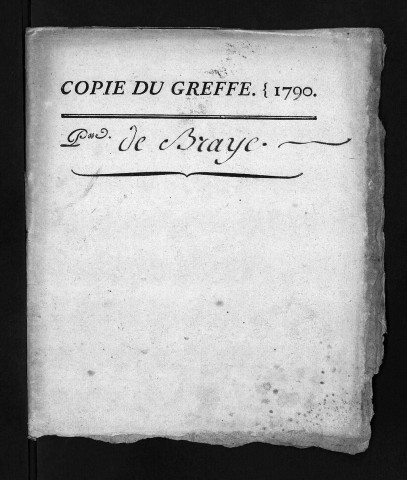 COPIE DU GREFFE. { 1790.
de Braye.